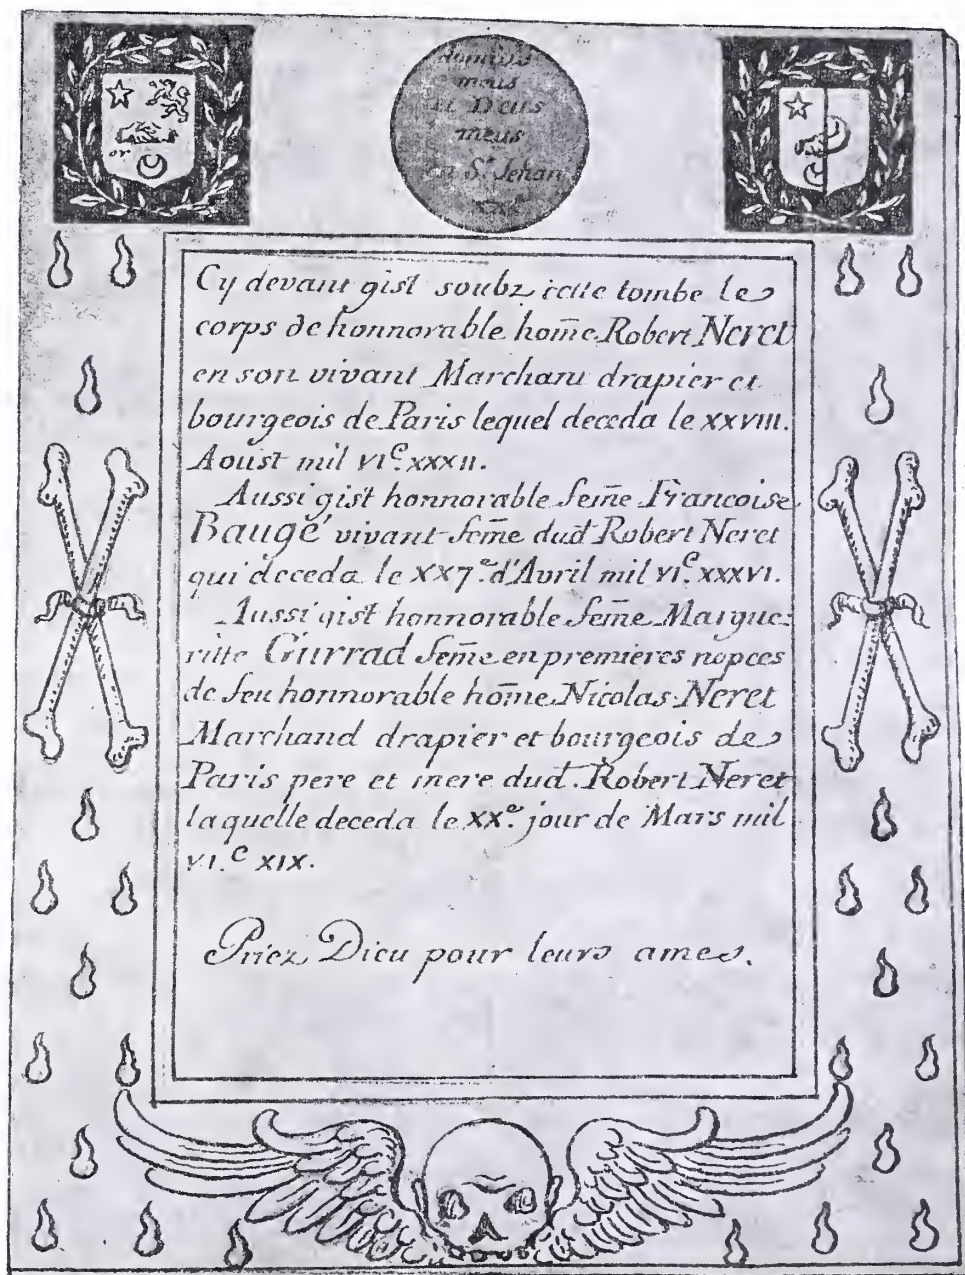 dominus
meus
et Deus
meus
en St. Jehan
or
Cy devant gist soubz cette tombe le
corps de honnorable hom̄e Robert Neret
en son vivant Marchant drapier et
bourgeois de Paris lequel deceda le XXVIII.
Aoust mil VI.C XXXII.
Aussi gist honnorable fem̄e Francoise
Baugé vivant fem̄e dud. Robert Neret
qui deceda le XX7.e d'Avril mil VI.C XXXVI.
Aussi gist honnorable fem̄e Margue=
ritte Gurrad fem̄e en premieres nopces
de feu honnorable hom̄e Nicolas Neret
Marchand drapier et bourgeois de
Paris pere et mere dud. Robert Neret
laquelle deceda le XX.e jour de Mars mil
VI.C XIX.
Priez Dieu pour leurs ames.